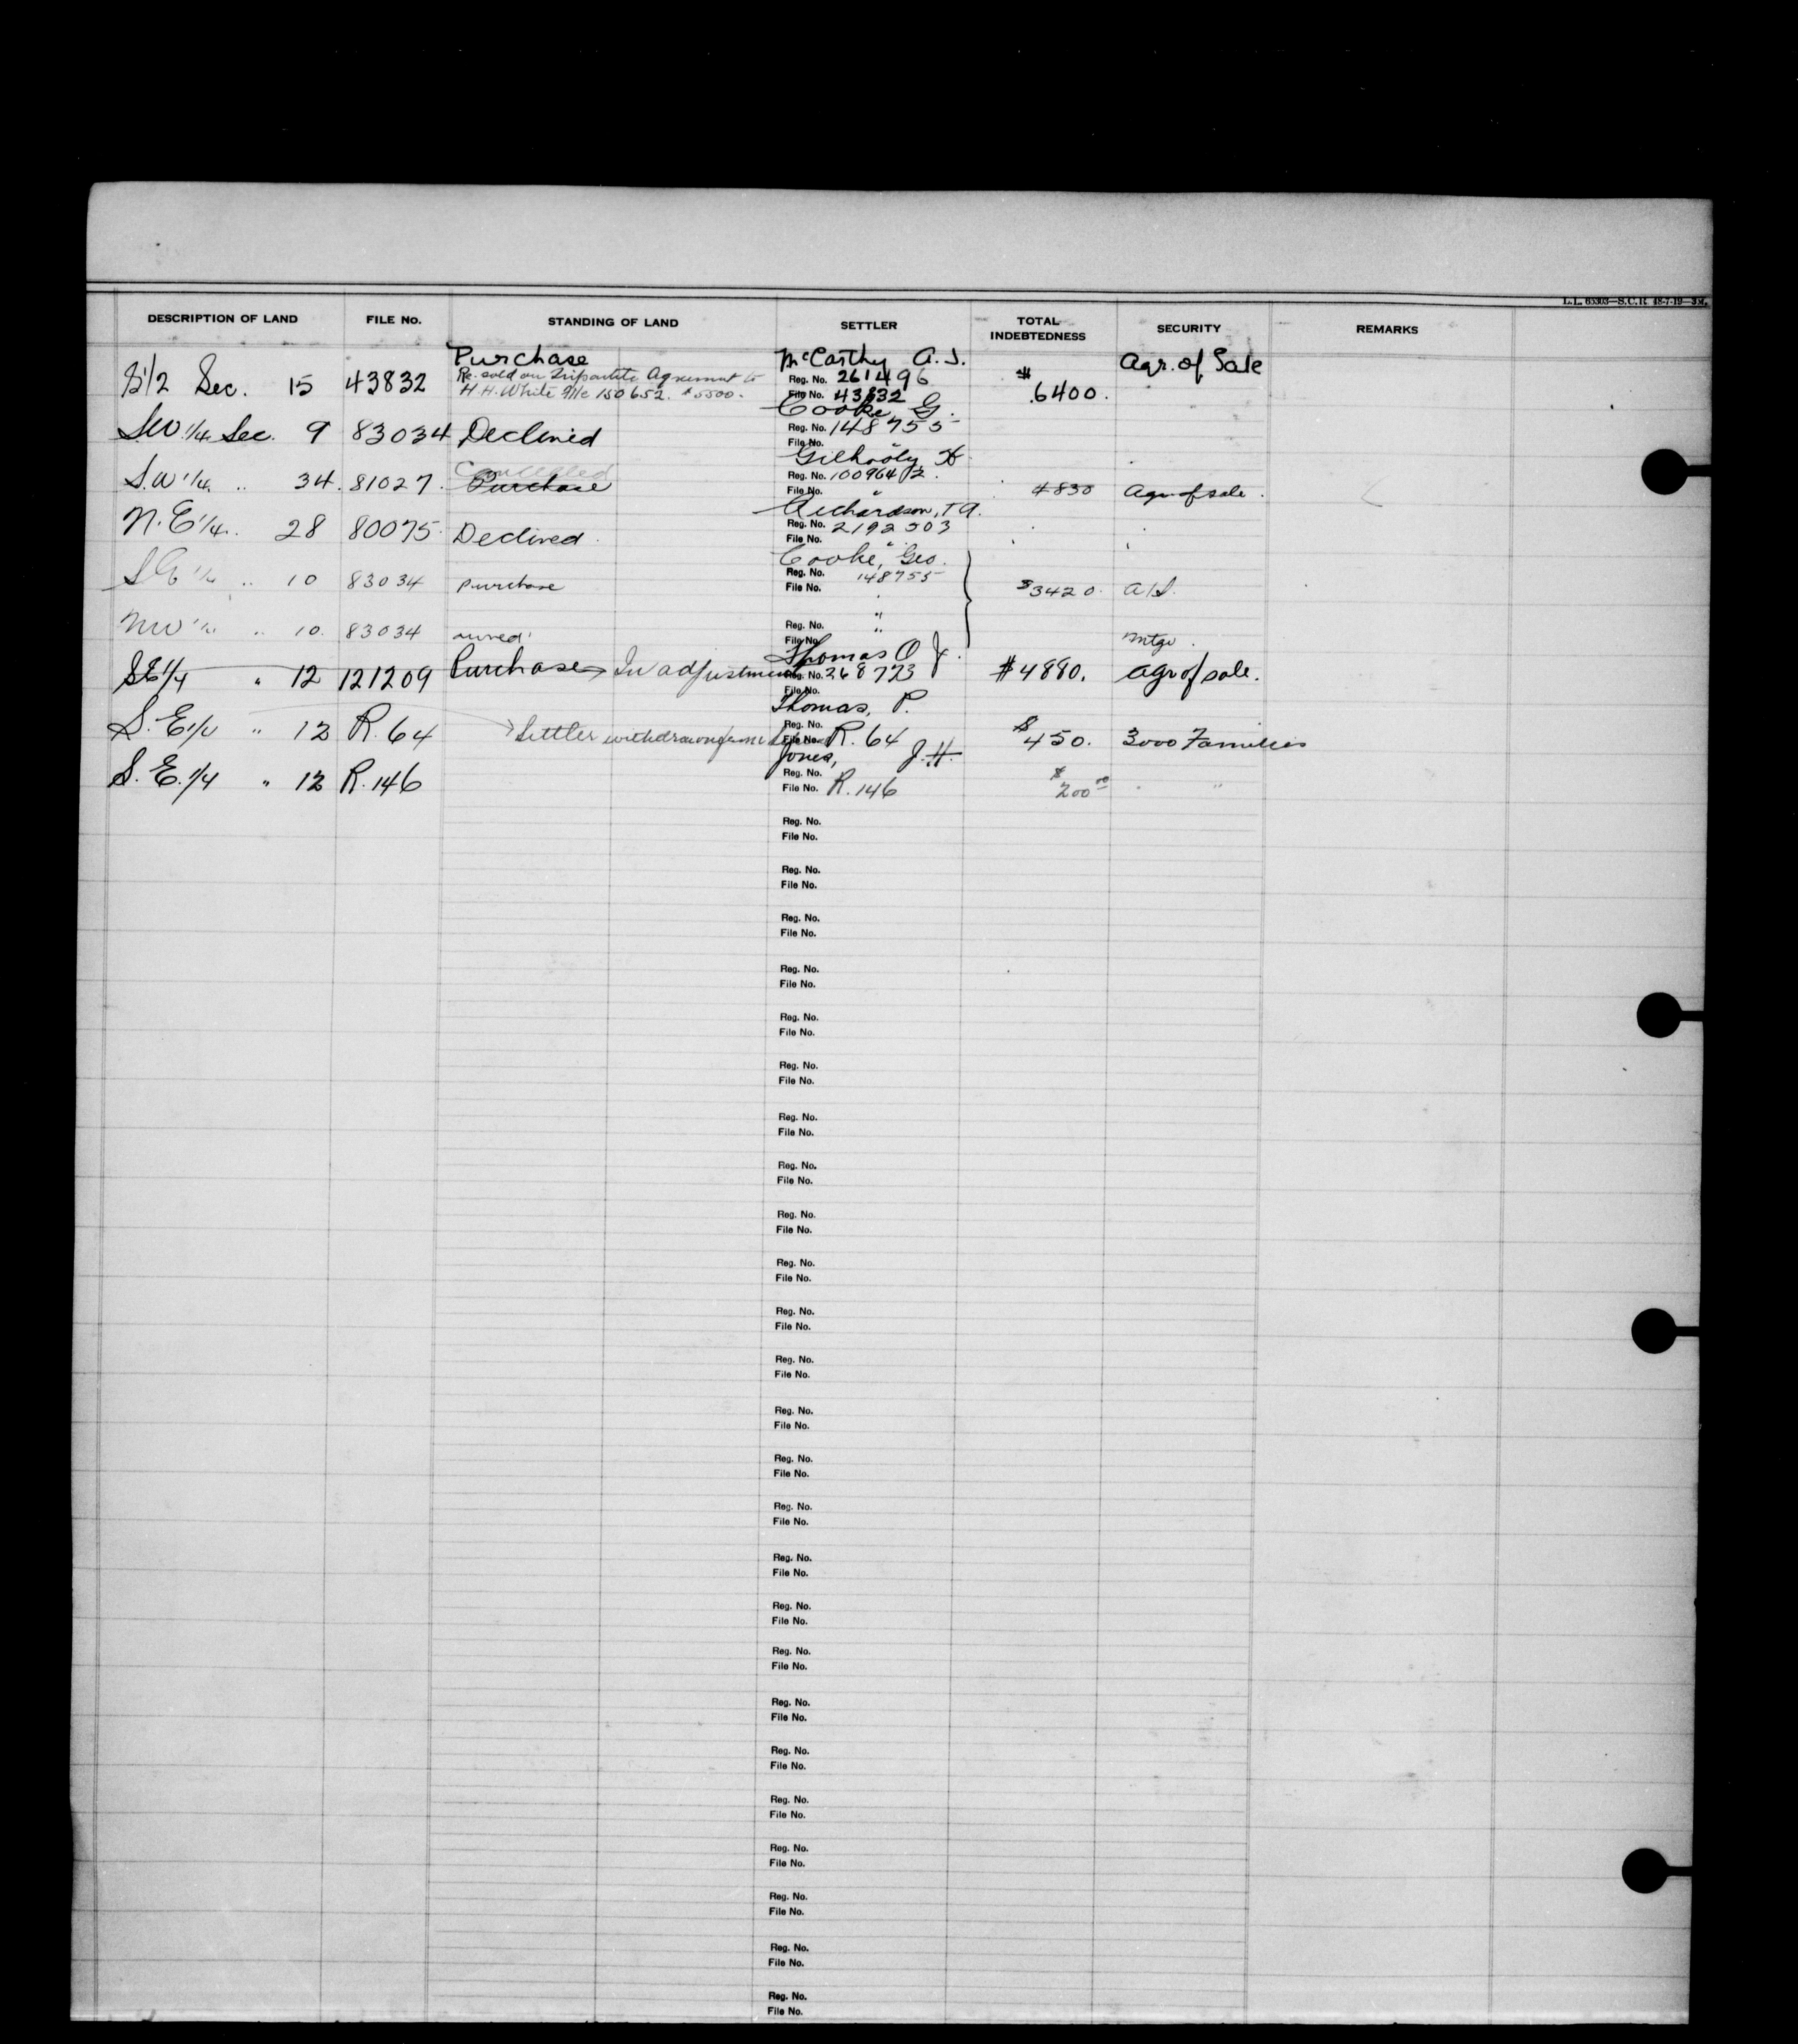 L.L. 65303—S.C.R. 48-7-19—3M.
DESCRIPTION OF LAND FILE No. STANDING OF LAND SETTLER TOTAL INDEBTEDNESS SECURITY REMARKS
Purchase McCarthy A. J. Agr. of Sale
S1/2 Sec. 15 43832 Re-sold on Tripartite Agreement to Reg. No. 261496 $ 6400.
H.H. White File 150652. $5500. File No. 43832
Cooke, G.
SW 1/4 Sec. 9 83034 Declined Reg. No. 148755
File No.
Cancelled Gilhooly H
S.W 1/4 " 34. 81027. Purchase Reg. No. 1009642.
File No. " $830 Agr of sale.
Richardson, T A.
N.E 1/4. 28 80075. Declined. Reg. No. 2192503
File No. "
Cooke, Geo.
SE 1/4 " 10 83034 Purchase Reg. No. 148755
File No. $3420. A/S.
"
NW 1/4 " 10. 83034 owned Reg. No. "
File No. mtge.
Thomas O J.
SE 1/4 " 12 121209 Purchase In adjustment Reg. No. 268773 #4880. Agr of sale.
File No.
Thomas, P.
S. E 1/4 " 12 R. 64 Settler withdrawn from Reg. No.
File No. R. 64 $450. 3000 Families
Jones, J. H.
S. E. 1/4 " 12 R. 146 Reg. No.
File No. R. 146 $200 00 " "
Reg. No.
File No.
Reg. No.
File No.
Reg. No.
File No.
Reg. No.
File No.
Reg. No.
File No.
Reg. No.
File No.
Reg. No.
File No.
Reg. No.
File No.
Reg. No.
File No.
Reg. No.
File No.
Reg. No.
File No.
Reg. No.
File No.
Reg. No.
File No.
Reg. No.
File No.
Reg. No.
File No.
Reg. No.
File No.
Reg. No.
File No.
Reg. No.
File No.
Reg. No.
File No.
Reg. No.
File No.
Reg. No.
File No.
Reg. No.
File No.
Reg. No.
File No.
Reg. No.
File No.
Reg. No.
File No.